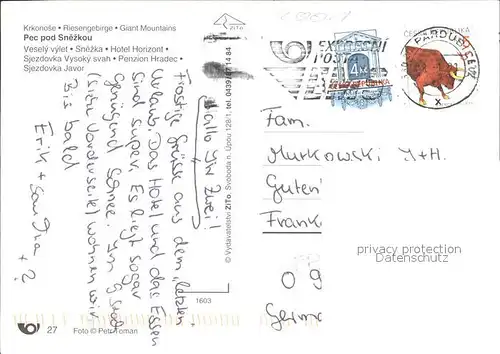 Krkonoše • Riesengebirge • Giant Mountains
Pec pod Sněžkou
Veselý výlet • Sněžka • Hotel Horizont •
Sjezdovka Vysoký svah • Penzion Hradec •
Sjezdovka Javor
Hallo Ihr Zwei!
Frostige Grüsse aus dem "letzten"
Urlaub. Das Hotel und das Essen
sind super. Es liegt sogar
genügend Schnee. Im
(siehe Vorderseite) wohnen wir
Bis bald
Erik + Sandra
+ ?
© Vydavatelství ZiTo. Svoboda n. Úpou 128/1, tel. 0439/ 84
ZiTo
1603
27
Foto © Petr Toman
EXPRESNÍ
POŠT
PARDUBICE
4
Fam.
Murkowski M+H.
Guten
Frank
0 9
Germa
privacy protection
Veldemann